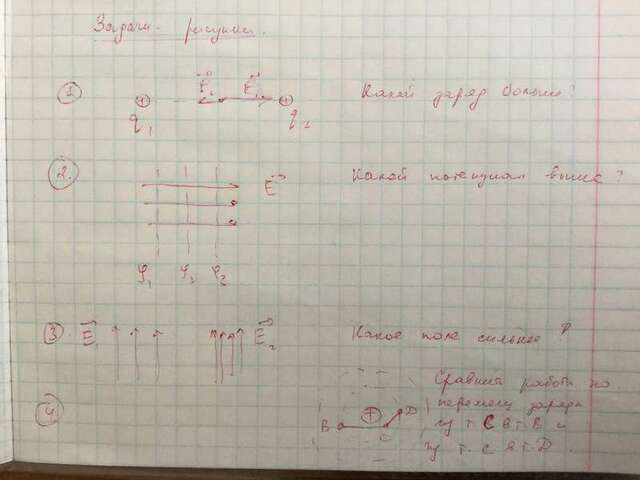 Задачи - рисунки.
① E₂ E₁ Какой заряд больше?
q₁ q₂
②. E Какой потенциал выше?
φ₁ φ₃ φ₂
③. E₁ E₂ Какое поле сильнее?
④ Сравнить работы по
перемещ заряда
B C D из т C в т. B и
из т. C в т. D.